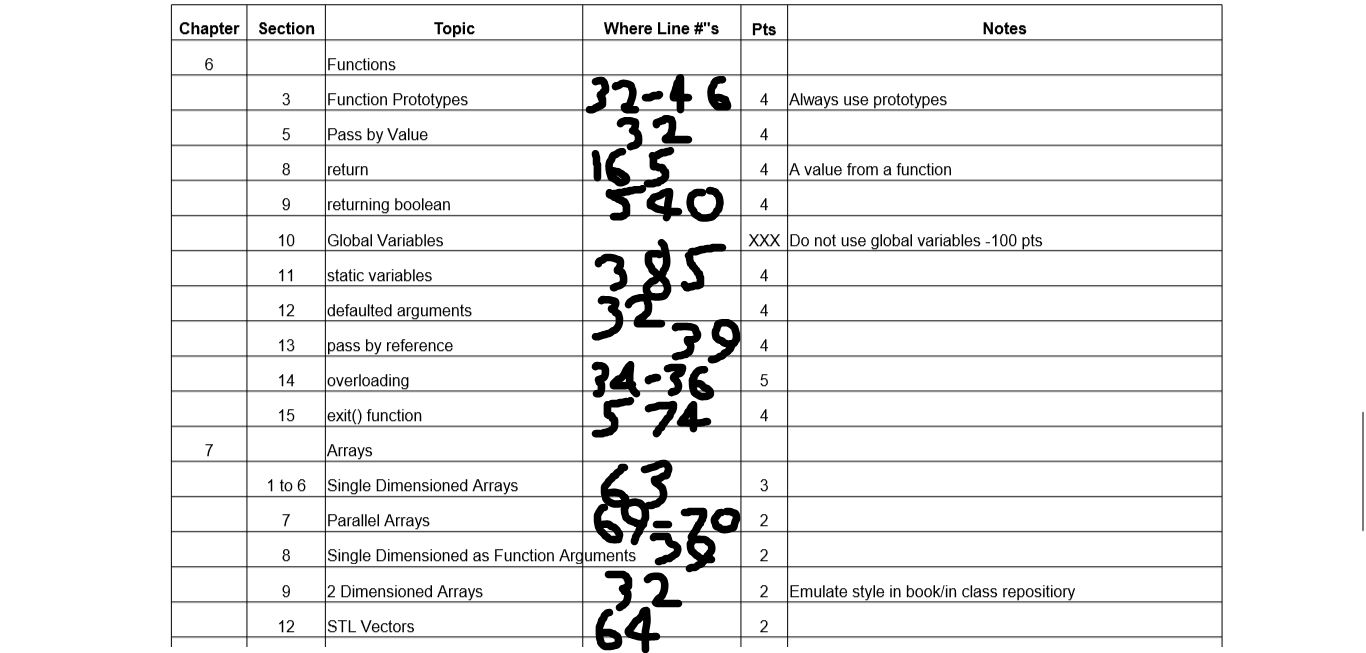 Chapter Section Topic Where Line #"s Pts Notes
6 Functions
3 Function Prototypes 32-46 4 Always use prototypes
5 Pass by Value 32 4
8 return 165 4 A value from a function
9 returning boolean 540 4
10 Global Variables XXX Do not use global variables -100 pts
11 static variables 385 4
12 defaulted arguments 32 4
13 pass by reference 39 4
14 overloading 34-36 5
15 exit() function 574 4
7 Arrays
1 to 6 Single Dimensioned Arrays 63 3
7 Parallel Arrays 69-70 2
8 Single Dimensioned as Function Arguments 39 2
9 2 Dimensioned Arrays 32 2 Emulate style in book/in class repositiory
12 STL Vectors 64 2